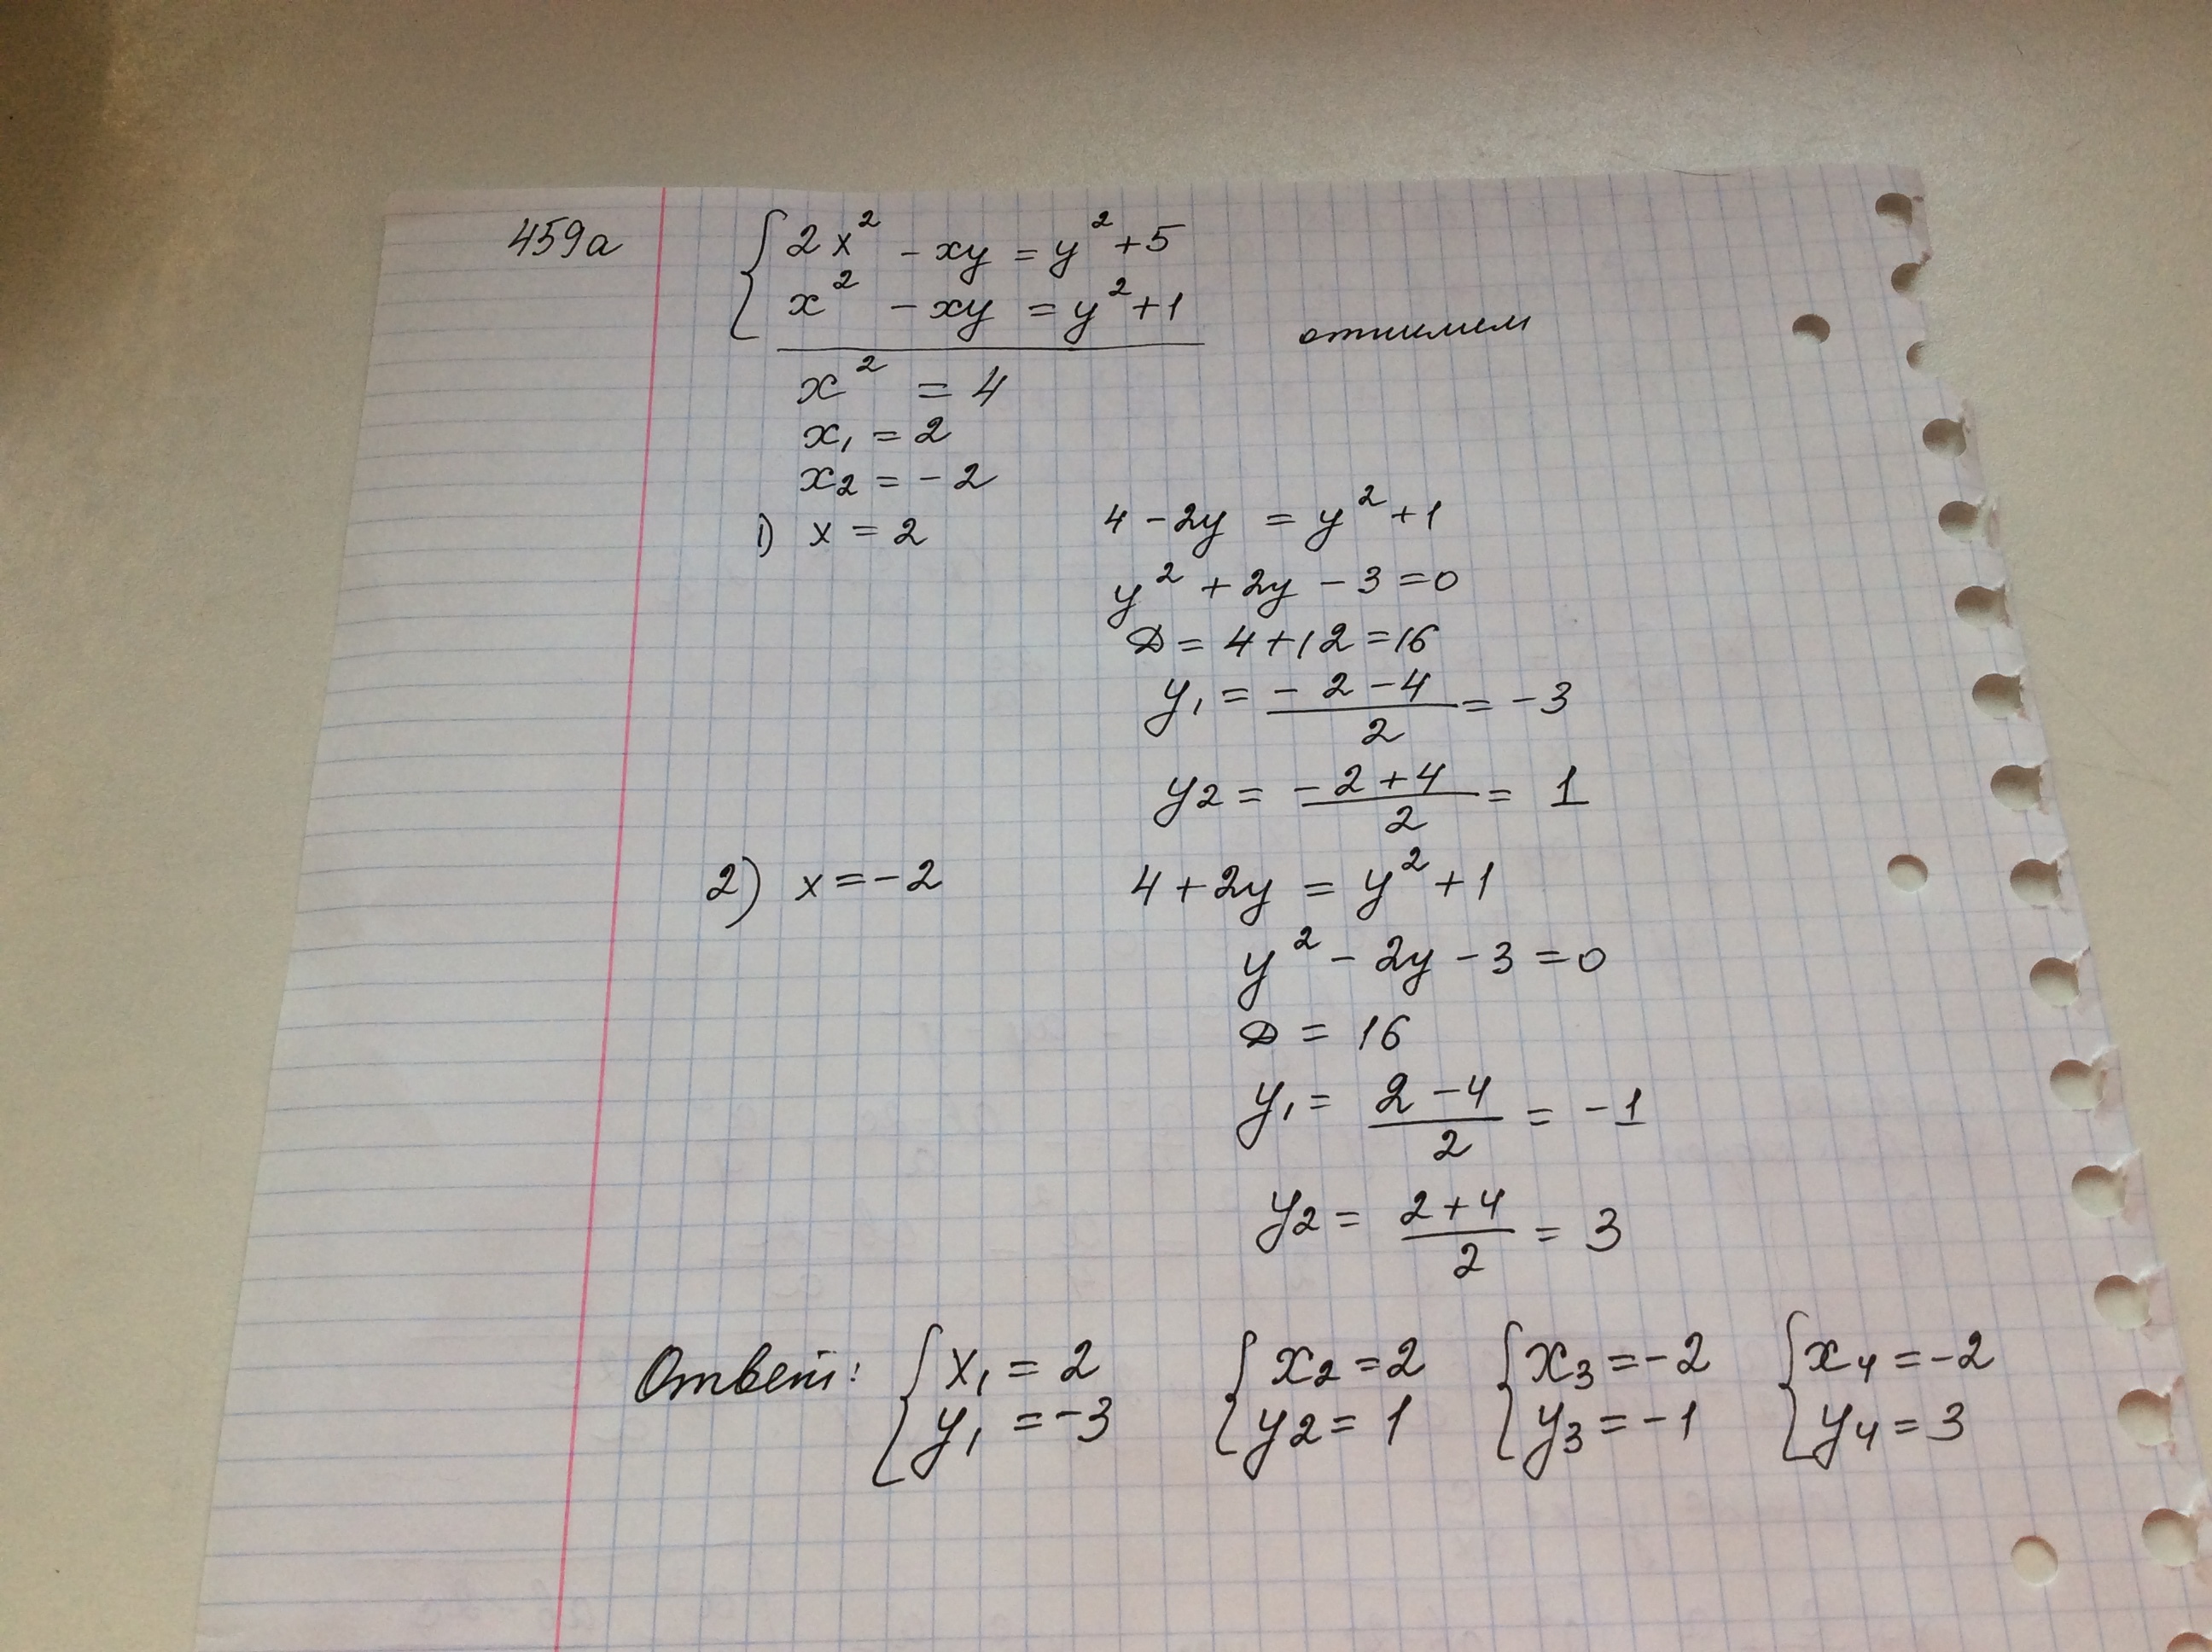 459а
{ 2x² - xy = y² + 5
x² - xy = y² + 1
отнимем
x² = 4
x₁ = 2
x₂ = -2
1) x = 2 4 - 2y = y² + 1
y² + 2y - 3 = 0
D = 4 + 12 = 16
y₁ = (-2 - 4)/2 = -3
y₂ = (-2 + 4)/2 = 1
2) x = -2 4 + 2y = y² + 1
y² - 2y - 3 = 0
D = 16
y₁ = (2 - 4)/2 = -1
y₂ = (2 + 4)/2 = 3
Ответ: { x₁ = 2 { x₂ = 2 { x₃ = -2 { x₄ = -2
y₁ = -3 y₂ = 1 y₃ = -1 y₄ = 3